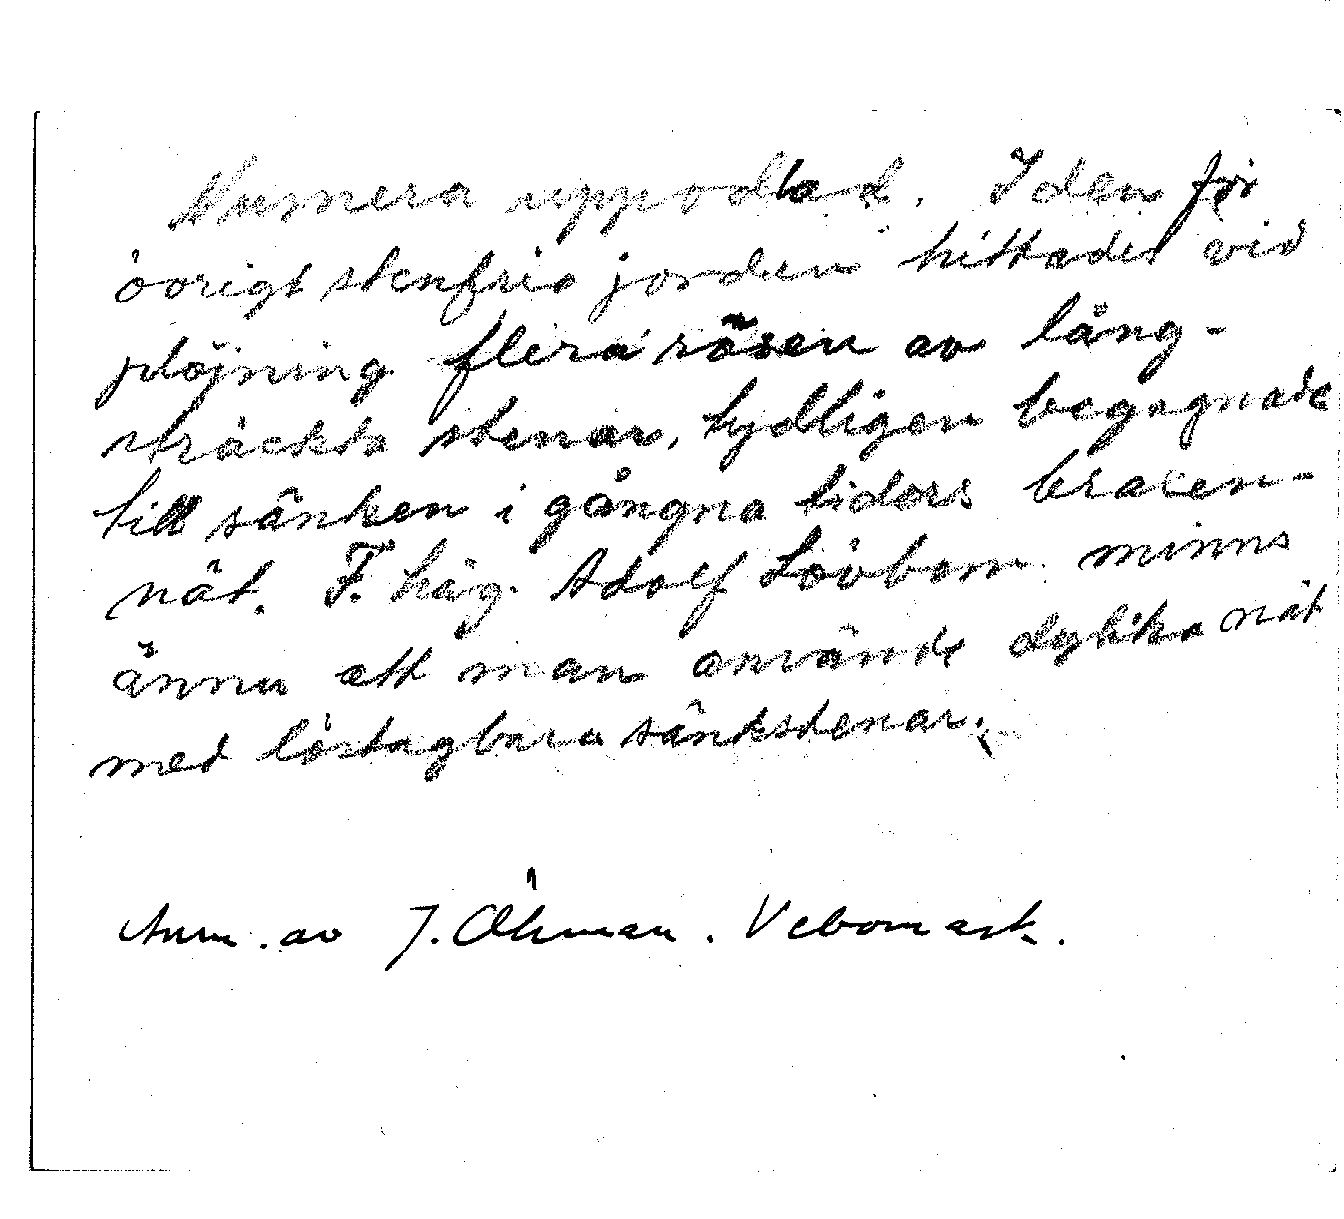 Numera uppodlad. I den för
övrigt stenfria jorden hittades vid
plöjning flera rösen av lång-
sträckta stenar, tydligen begagnade
till sänken i gångna tidors braxen-
nät. F. häg. Adolf Lövbom minns
ännu att man använde dylika nät
med löstagbara sänkstenar.
Anm. av J. Öhman. Vebomark.